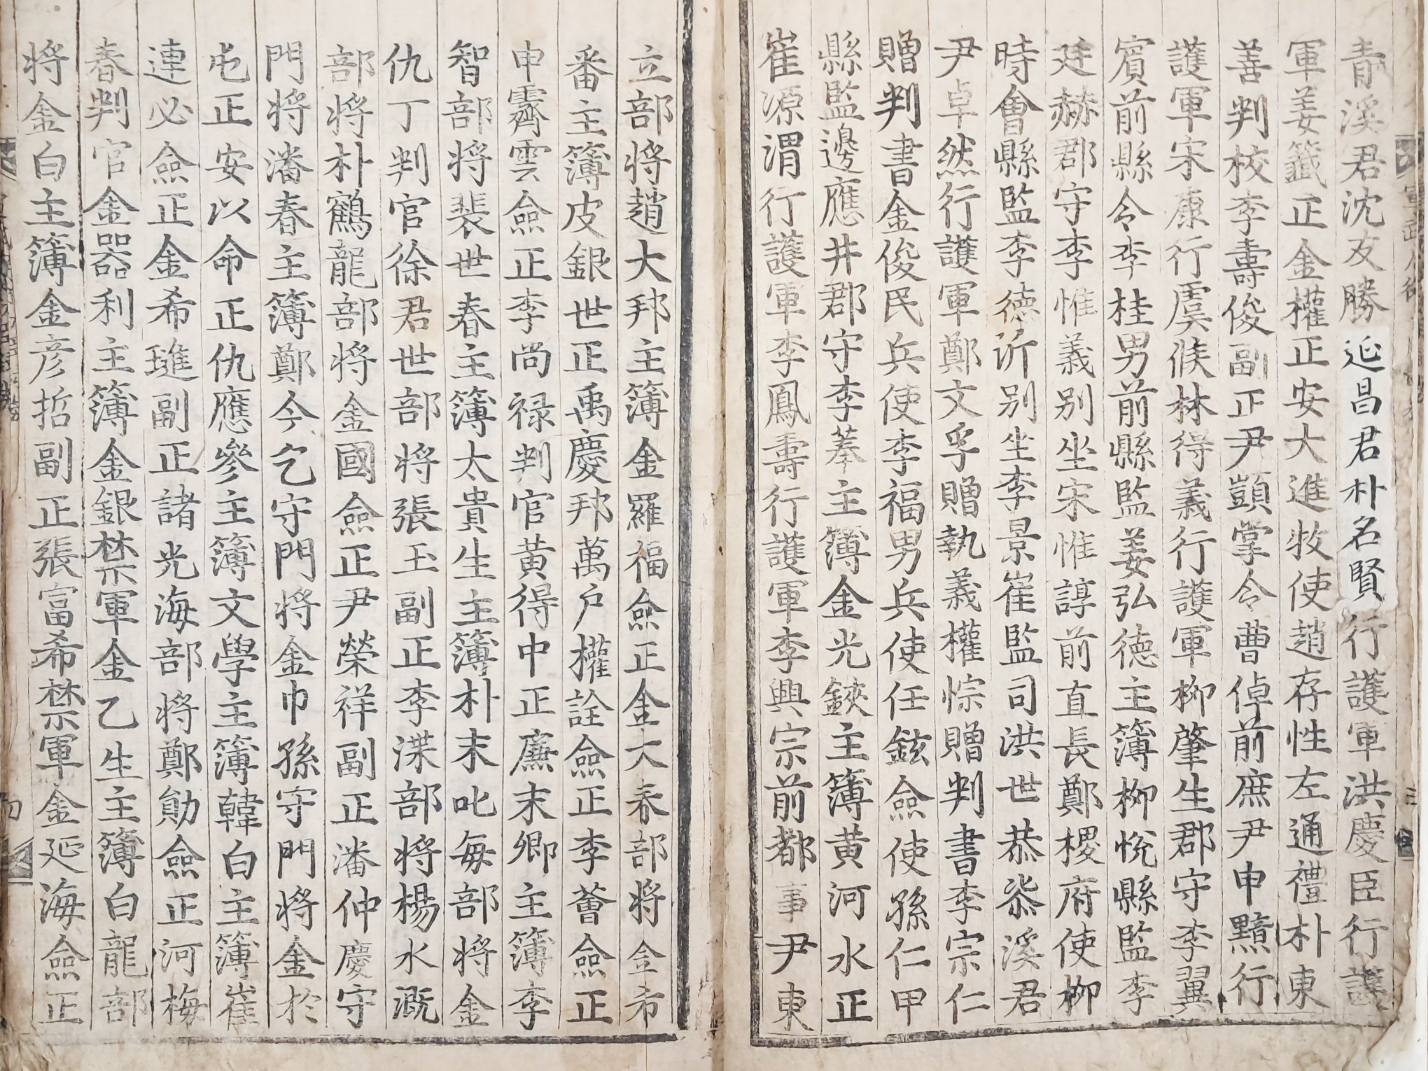 青溪君沈友勝延昌君朴名賢行護軍洪慶臣行護
軍姜籖正金權正安大進牧使趙存性左通禮朴東
善判校李壽俊副正尹顗掌令曹倬前庶尹申黯行
護軍宋康行虞候林得義行護軍柳肇生郡守李翼
賓前縣令李桂男前縣監姜弘德主簿柳悅縣監李
廷赫郡守李惟義別坐宋惟諄前直長鄭稷府使柳
時會縣監李德沂別坐李景崔監司洪世恭恭溪君
尹卓然行護軍鄭文孚贈執義權悰贈判書李宗仁
贈判書金俊民兵使李福男兵使任鉉僉使孫仁甲
縣監邊應井郡守李葑主簿金光鋏主簿黄河水正
崔源渭行護軍李鳳壽行護軍李興宗前都事尹東
立部将趙大邦主簿金羅福僉正金大春部将金市
番主簿皮銀世正禹慶邦萬户權詮僉正李薈僉正
申霽雲僉正李尚禄判官黃得中正廉末卿主簿李
智部将裴世春主簿太貴生主簿朴末叱每部将金
仇丁判官徐君世部将張玉副正李渫部将楊水溉
部将朴鶴龍部将金國僉正尹榮祥副正潘仲慶守
門将潘春主簿鄭今乞守門将金巾孫守門将金於
屯正安以命正仇應參主簿文學主簿韓白主簿崔
連必僉正金希璡副正諸光海部将鄭勛僉正河梅
春判官金器利主簿金銀禁軍金乙生主簿白龍部
将金白主簿金彦哲副正張富希禁軍金延海僉正